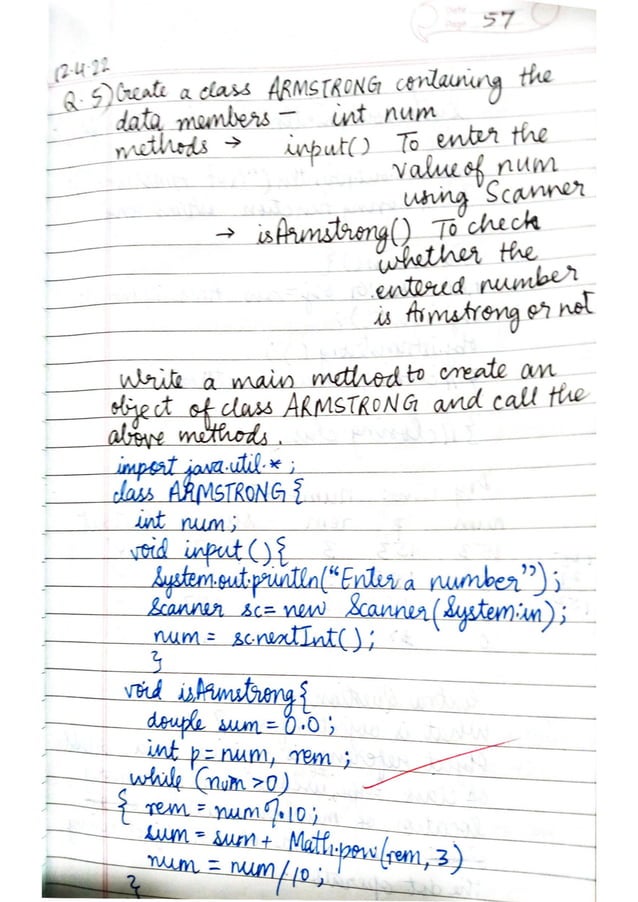 Date
Page 57
12.4.22
Q.5) Create a class ARMSTRONG containing the
data members – int num
methods → input() To enter the
value of num
using Scanner
→ isArmstrong() To check
whether the
entered number
is Armstrong or not
Write a main method to create an
object of class ARMSTRONG and call the
above methods.
import java.util.*;
class ARMSTRONG {
int num;
void input(){
System.out.println("Enter a number");
Scanner sc= new Scanner(System.in);
num = sc.nextInt();
}
void isArmstrong{
douple sum = 0.0;
int p=num, rem;
while (num>0)
{ rem = num%10;
sum = sum + Math.pow(rem, 3)
num = num/10;
}